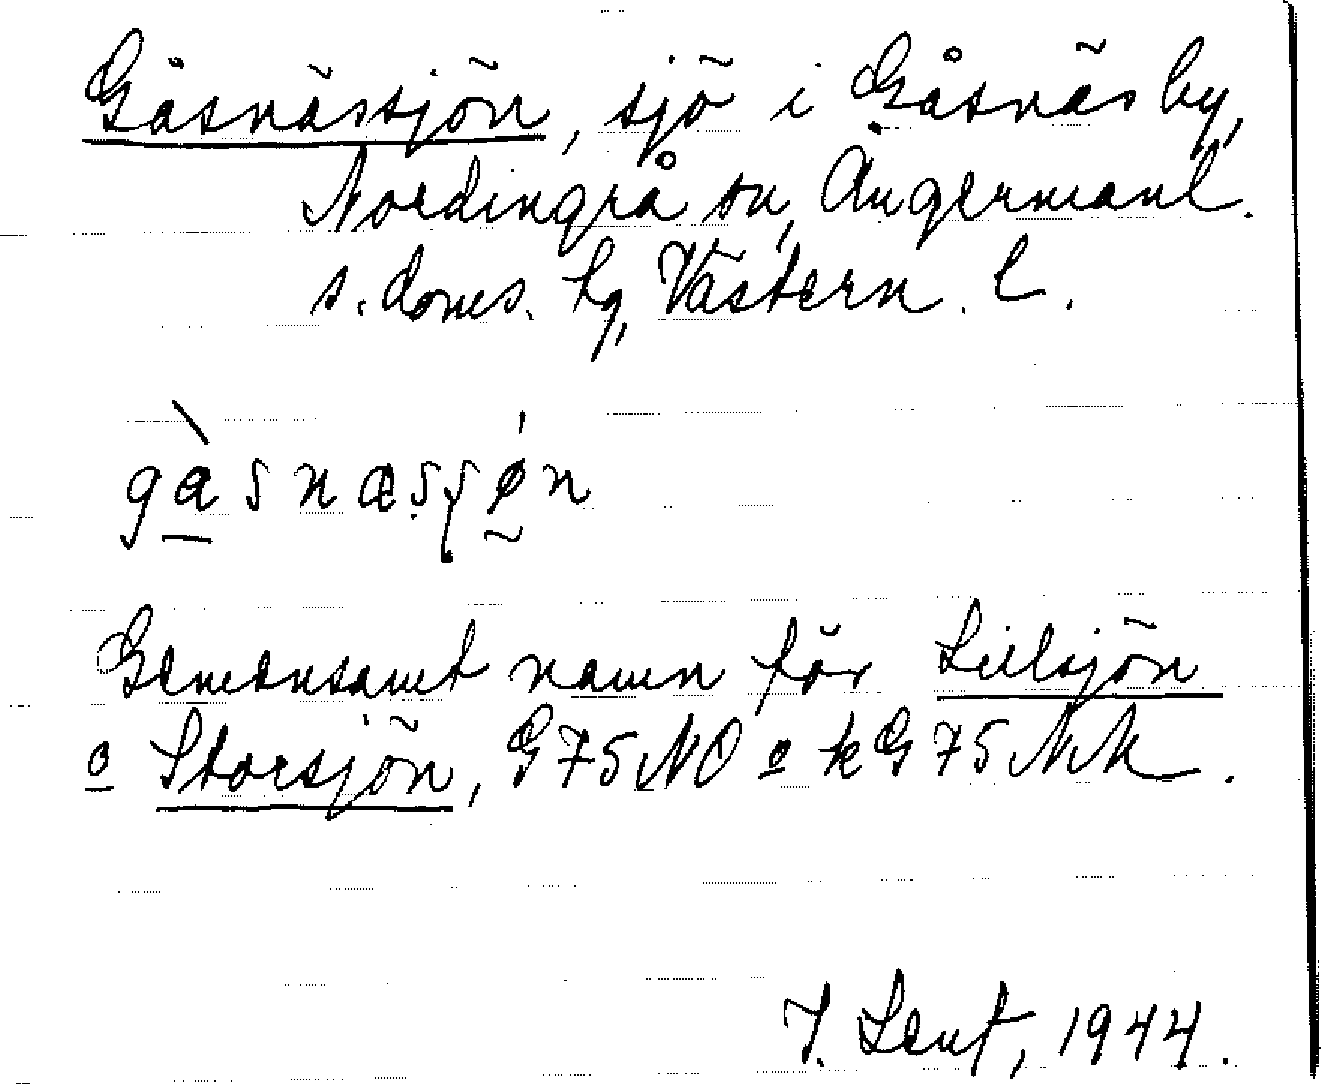 Gåsnässjön, sjö i Gåsnäs by,
Nordingrå sn, Ångermanl.
s. doms. tg, Västern. l.
gàsnæsʂǿn
Gemensamt namn för Lillsjön
o Storsjön, G75NO o kG75NM.
1944.